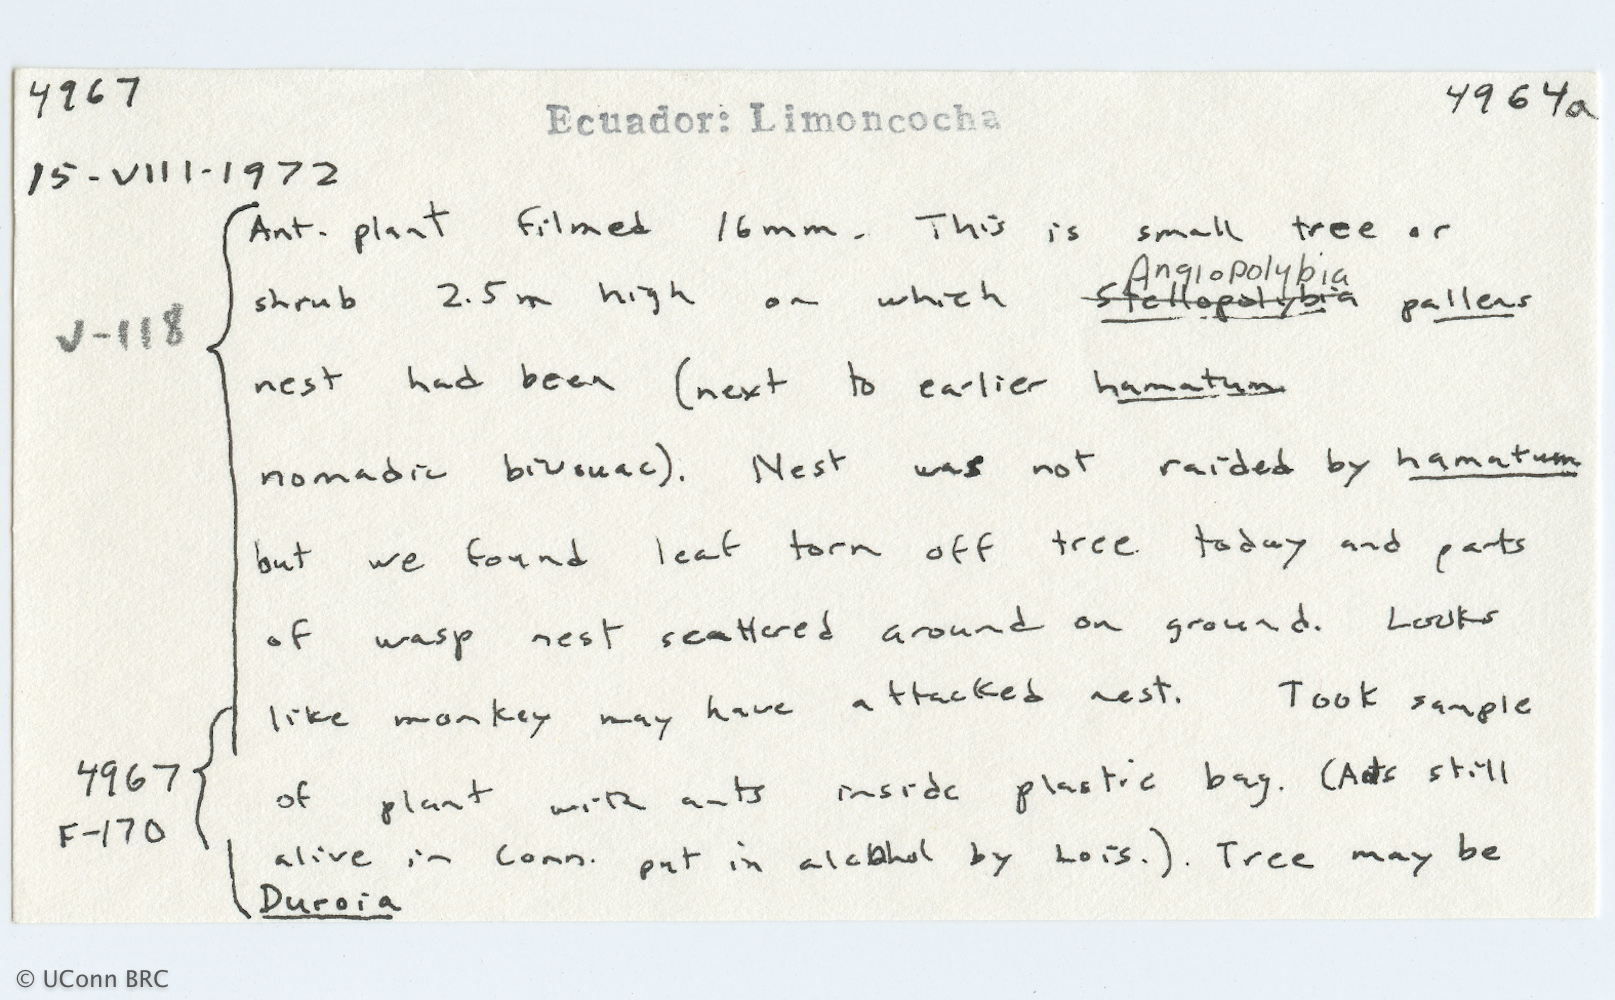 4967
4964a
Ecuador: Limoncocha
15-VIII-1972
Ant. plant filmed 16mm. This is small tree or
Angiopolybia
shrub 2.5m high on which Stellopolybia pallens
V-118
nest had been (next to earlier hamatum
nomadic bivouac). Nest was not raided by hamatum
but we found leaf torn off tree today and parts
of wasp nest scattered around on ground. Looks
like monkey may have attacked nest. Took sample
4967
of plant with ants inside plastic bag. (Ants still
F-170
alive in Conn. put in alcohol by Lois.). Tree may be
Duroia
© UConn BRC